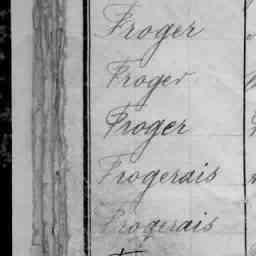 Froger
Froger
Froger
Frogerais
Frogerais